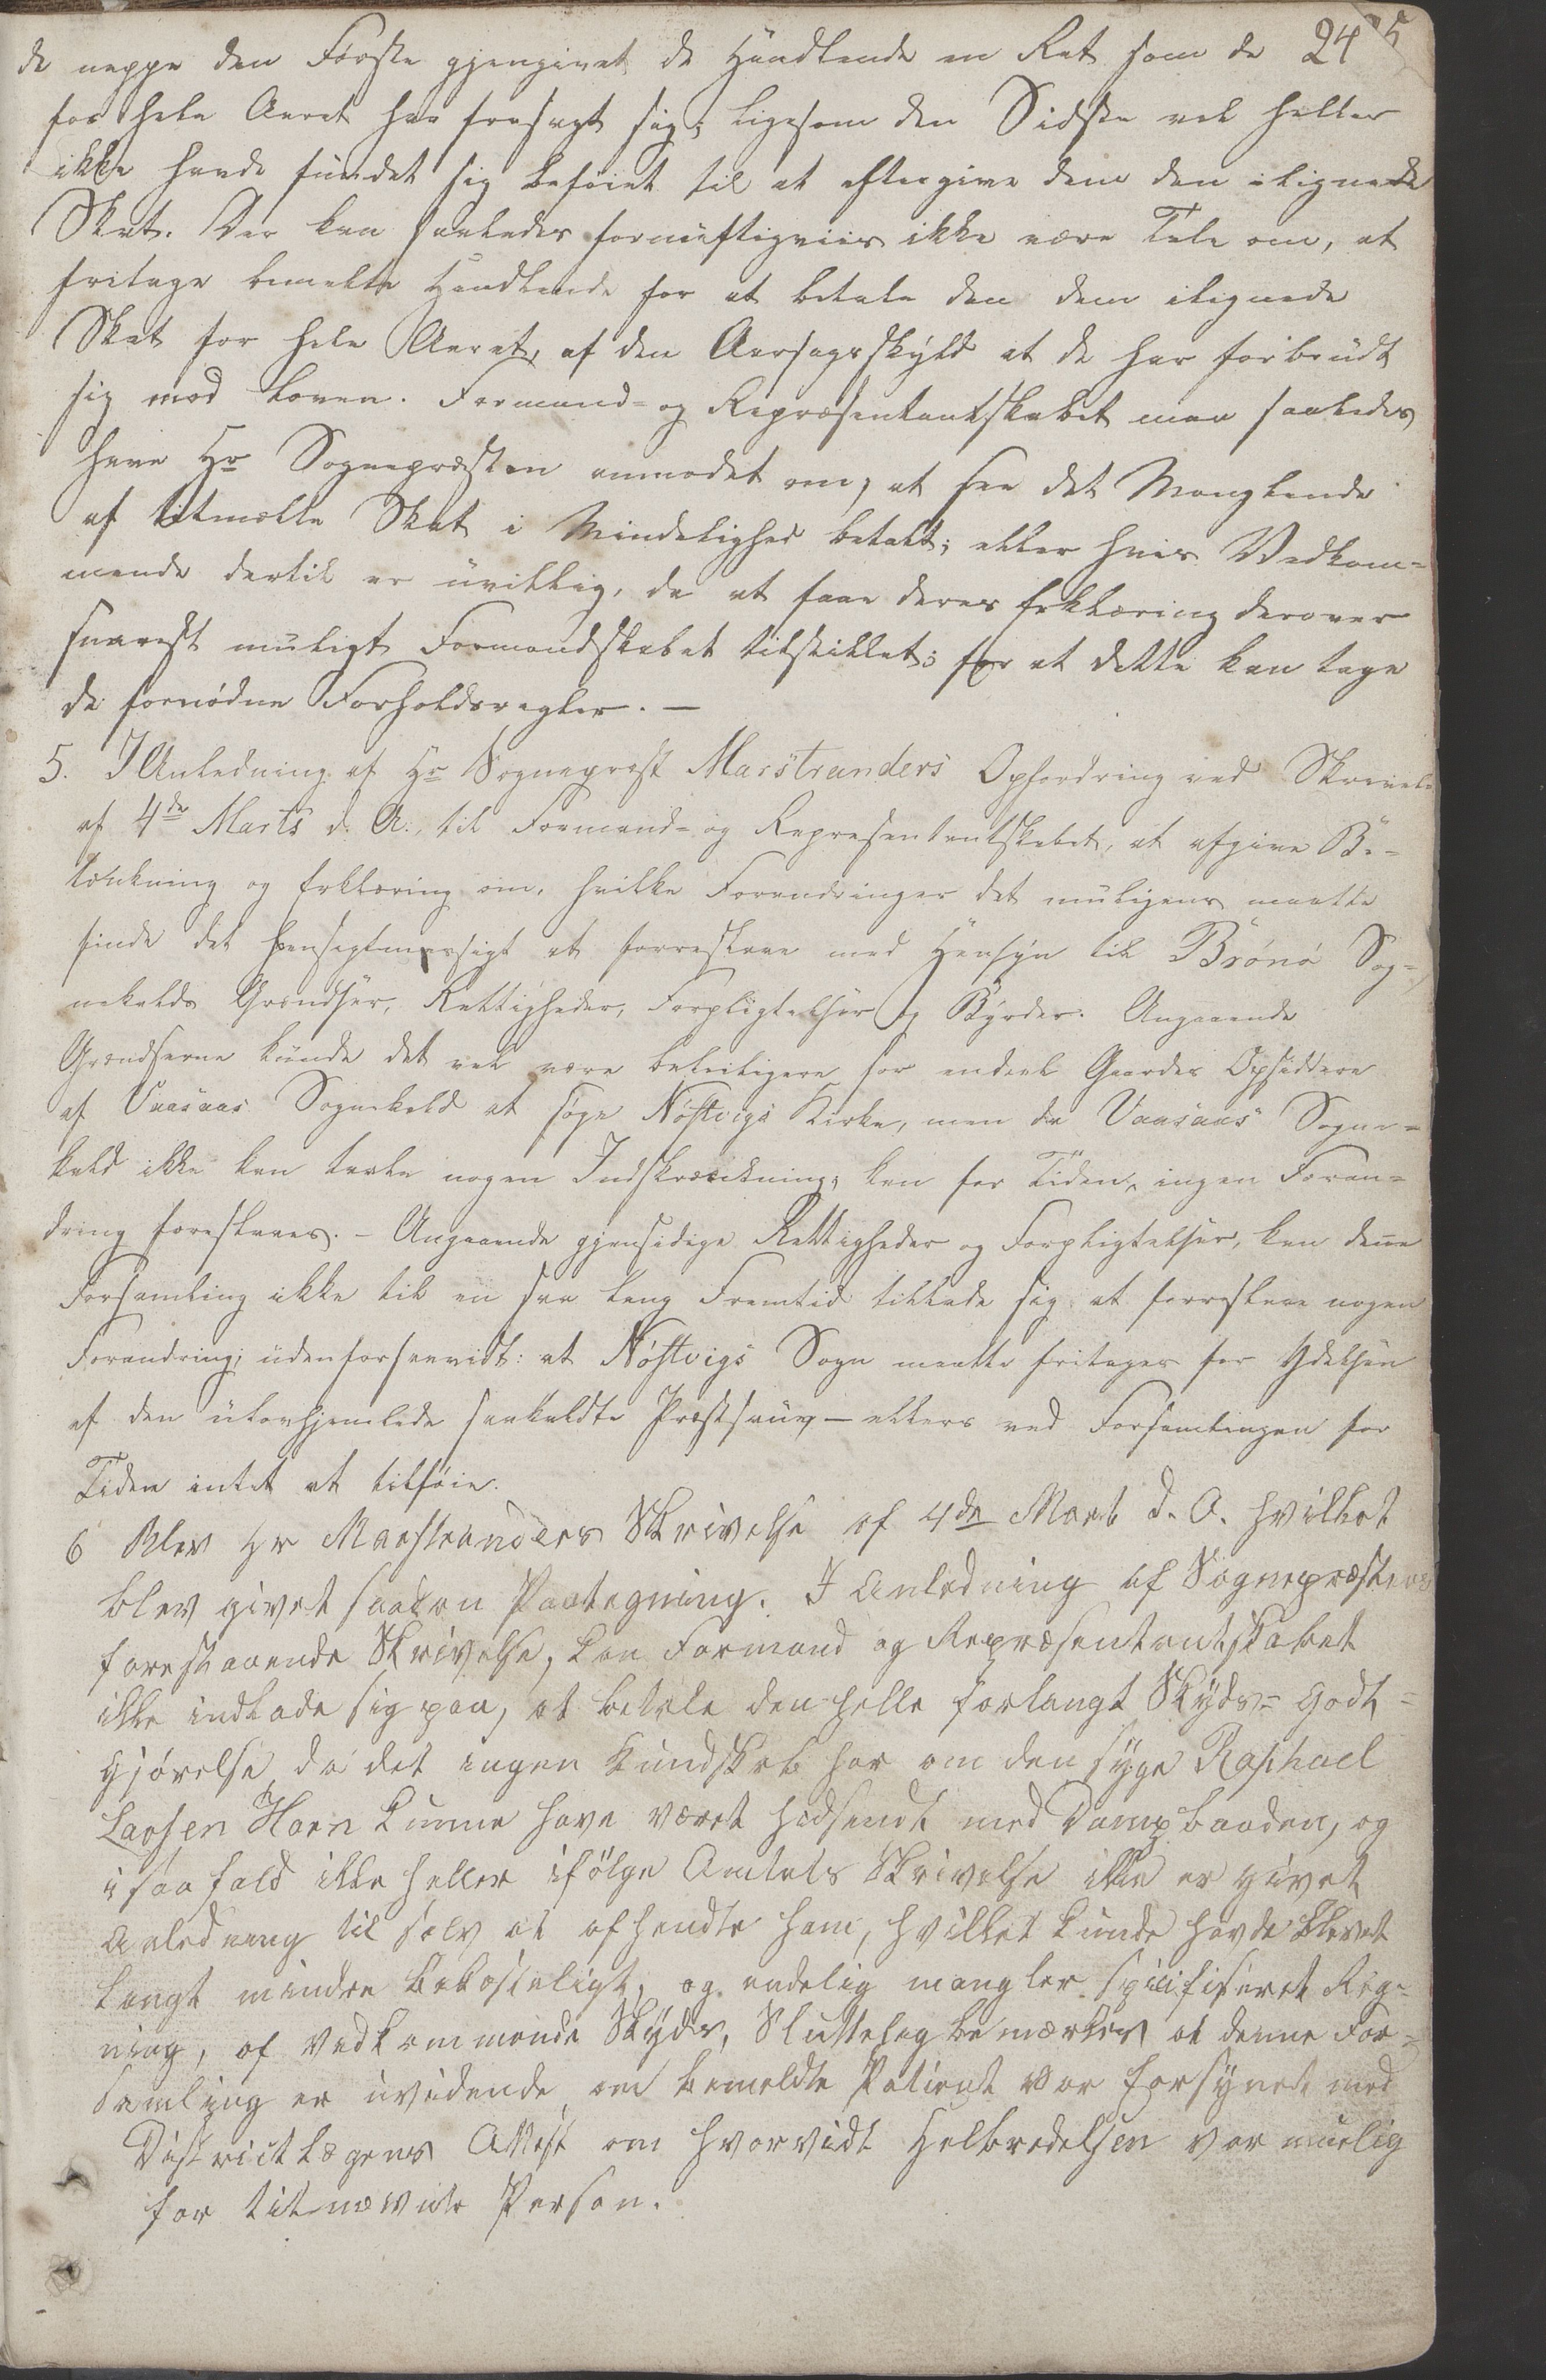 24 5
de neppe den Første gjengivet de Handlende en Ret som de
for hele Aaret har forsagt sig; ligesom den Sidste vel heller
ikke havde fundet sig beføiet til at eftergive dem den ilignede
Skat. Der kan saaledes fornuftigviis ikke være Tale om, at
fritage bemeldte Handlende for at betale den dem ilignede
Skat for hele Aaret, af den Aarsagsskyld at de har forbrudt
sig mod Loven. Formand- og Repræsentantskabet maa saaledes
have Hr Sognepræsten anmodet om, at faa det Manglende
af bemeldte Skat i Mindelighed betalt; eller hvis Vedkom=
mende dertil er uvillig, da at faae deres Erklæring derover
snarest muligt Formandskabet tilstillet; for at dette kan tage
de fornødne Forholdsregler. —
5. I Anledning af Hr Sognepræst Marstranders Opfordring ved Skrivelse
af 4de Marts d. A., til Formand- og Representantskabet, at afgive Be=
tænkning og Erklæring om, hvilke Forandringer det muligens maatte
finde det hensigtmæssigt at forreslaae med Hensyn til Brönö Sog=
nekalds Grændser, Rettigheder, Forpligtelser og Byrder. Angaaende
Grændserne kunde det vel være beleiligere for endeel Gaardes Opsiddere
af Vaasaas Sognekald at søge Nöstvigs Kirke, men da Vaasaas Sogne=
kald ikke kan taale nogen Indskrænkning, kan for Tiden ingen Foran=
dring foreslaaes. - Angaaende gjensidige Rettigheder og Forpligtelser, kan denne
Forsamling ikke til en saa lang Fremtid tillade sig at forreslaae nogen
Forandring; udenforsaavidt: at Nöstvigs Sogn maatte fritages for Ydelsen
af den ulovhjemlede saakaldte Præstsauv — ellers ved Forsamlingen for
Tiden intet at tilføie.
6 Blev Hr Marstranders Skrivelse af 4de Marts d. A. hvilket
blev givet saadan Paategning. I Anledning af Sognepræstens
forestaaende Skrivelse, kan Formand og Repræsentantskabet
ikke indlade sig paa, at betale den hele forlangt Skyds- Godt=
gjørelse, da det ingen Kundskab har om den syge Raphael
Larsen Horn kunne have været hidsendt med Dampbaaden, og
i saa fald ikke heller ifølge Amtets Skrivelse ikke er givet
Anledning til selv at afhendte ham, hvilket kunde havde blevet
langt mindre bekosteligt, og endelig mangler spicifiseret Reg=
ning, af vedkommende Skyds, Sluttelig bemærkes at denne For=
samling er uvidende om bemeldte Patient var forsynet med
Districtlægens Attest om hvorvidt Helbredelsen var muelig
for titnævnte Person.